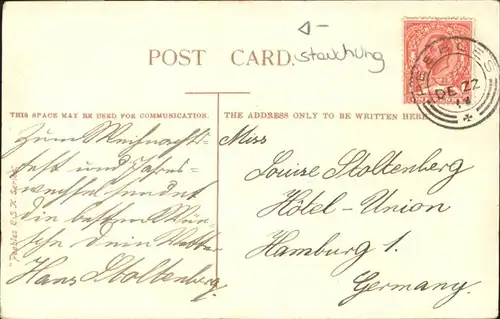 stauchung
POST CARD.
PEEBLES
DE 22
THIS SPACE MAY BE USED FOR COMMUNICATION.
THE ADDRESS ONLY TO BE WRITTEN HERE
Zum Weihnachts-
fest und Jahres-
wechsel sendet
Die besten Wün-
sche Dein Vetter
Hans Stoltenberg.
Miss
Louise Stoltenberg
Hôtel-Union
Hamburg 1.
Germany.
"Peebles